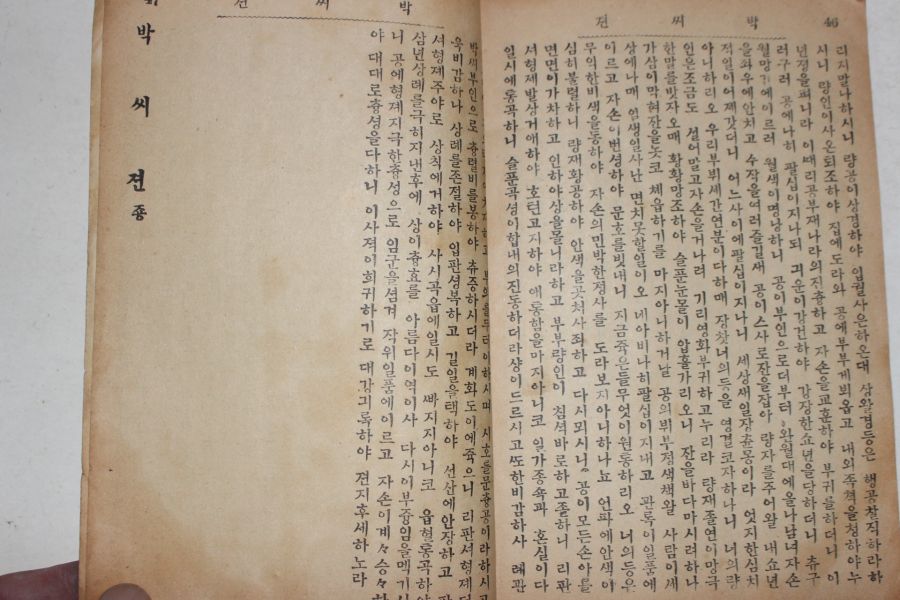 박 씨 젼 46
리지말나하시니 량공이샹경하야 입궐사은하온대 샹왈경등은 행공찰직하라하
시니 량인이사은퇴조하야 집에도라와 공에부부게뵈옵고 내외죡쳑을청하야누
년졍을펴니라 이때리공부재나라의진츙하고 자손을교훈하야 부귀를하더니 이
러구러 공에나히 팔십이지나되 긔운이강건하야 강장한쇼년을당하더니 츄구
월망간에이르러 월색이명낭하니 공이부인으로더부터 완월대에올나남녀자손
을좌우에안치고 수작을여러즐길새 공이스사로잔을잡아 량자를주어왈 내쇼년
적일이어제갓더니 어느사이에팔십이지나니 세상새일장츈몽이라 엇지한심치
아니하리오 우리부뷔세간연분이다하매 장찻너의등을 영결코자하나니 너의량
인은조금도 셜어말고자손을거나려 기리영화부귀하고누리라 량재졸연이망극
한말를밧자오매 황황망조하야 슬푼눈물이 압흘가리오니 잔을바다마시려하나
가삼이막혀잔을놋코 쳬읍하기를 마지아니하거날 공의뷔부졍색책왈 사람이세
상에나매 일생일사난 면치못할일이오 네아비나히팔십이지내고 관록이일품에
이르고 자손이번셩하야 문호를빗내니 지금죽은들무엇이원통하리오 너의등은
무익한비색을동하야 자손의민박한졍사를 도라보지아니하나뇨 언파에안색이
심히불렬하니 량재황공하야 안색을곳처사죄하고 다시뫼시니 공이모든손아를
면면이가차하고 인하야상을물니라하고 부부량인이 침셕바로하고졸하니 리판
셔형졔발상거애하야 호텬고지하야 애통함을마지아니코 일가종족과 혼실이다
일시에통곡하니 슬푼곡셩이합내의진동하더라샹이드르시고또한비감하사 례관
박 씨 젼
부의를두터이하시며 시호를문츙공이라하시고
박씨부인으로 츙렬비를봉하야 츄증하시더라 계화도이에죽으니 리판셔형졔더
욱비감하나 상례를존졀하야 입관셩복하고 길일을택하야 션산에안장하고
셔형졔주야로 상측에거하야 사시곡읍에일시도 빠지지아니코 읍혈통곡하야
삼년상례를극히지낸후에 상이츙효를 아름다이역이사 다시이부즁임을맥기시
니 공에형졔지극한츙셩으로 임군을셤겨 작위일품에이르고 자손이계々승々하
야 대대로츙셩을다하니 이사젹이희귀하기로 대강긔록하야 젼지후세하노라
박 씨 젼 죵